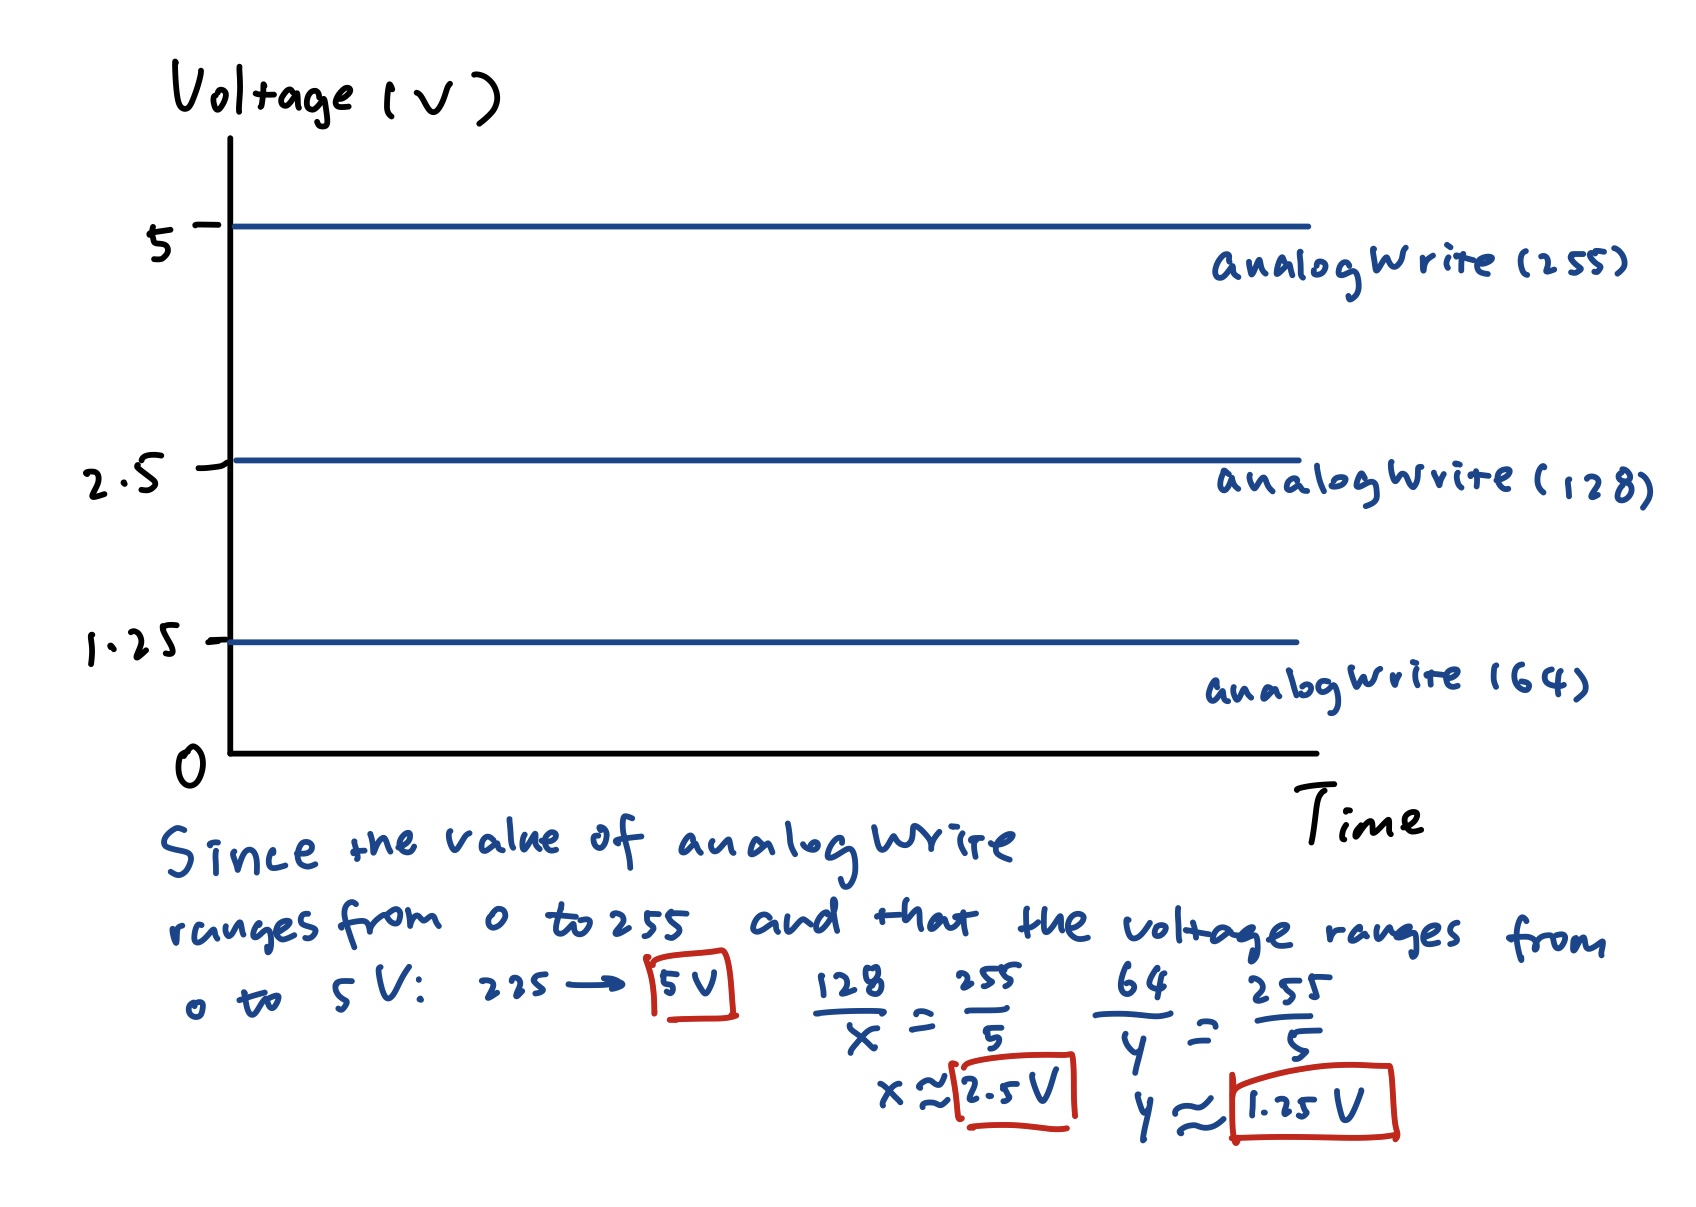 Voltage (V)
5
analogWrite (255)
2.5
analogWrite (128)
1.25
analogWrite (64)
0
Time
Since the value of analogWrite
ranges from 0 to 255 and that the voltage ranges from
0 to 5 V: 225 → 5 V 128/x = 255/5 64/y = 255/5
x ≈ 2.5 V y ≈ 1.25 V